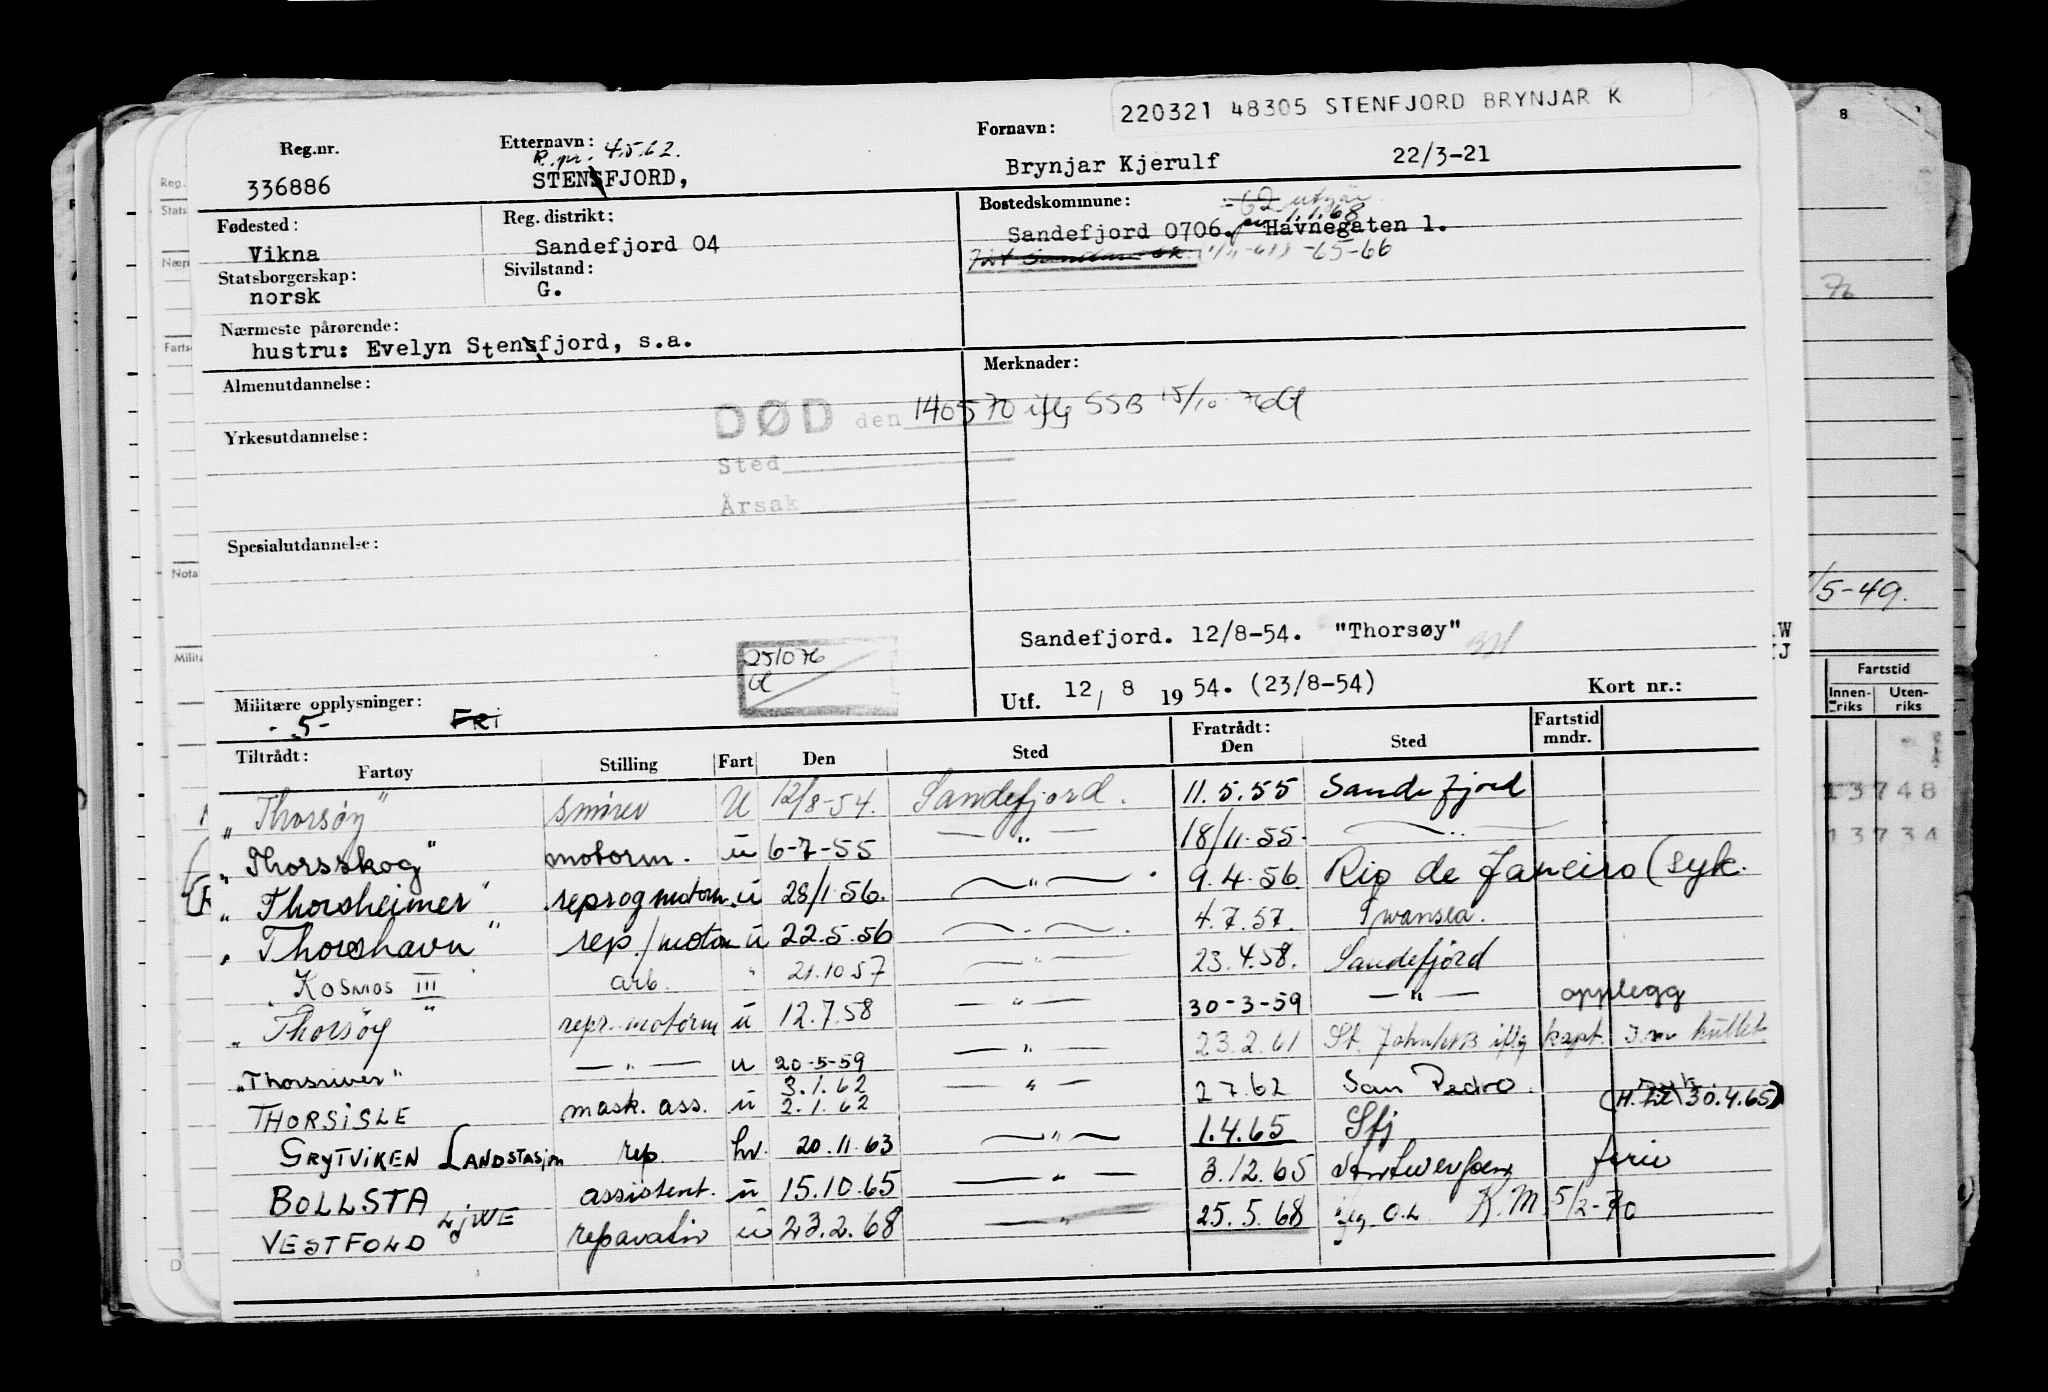 220321 48305 STENFJORD BRYNJAR K
Reg.nr. Etternavn: Fornavn:
R. pr. 4.5.62.
336886 STENSFJORD, Brynjar Kjerulf 22/3-21
Fødested: Reg. distrikt: Bostedskommune:
1.1.68
Vikna Sandefjord 04 Sandefjord 0706. Havnegaten 1.
-65-66
Statsborgerskap: Sivilstand:
norsk G.
Nærmeste pårørende:
hustru: Evelyn Stensfjord, s.a.
Almenutdannelse: Merknader:
DØD den 140570 iflg SSB 15/10-76
Yrkesutdannelse:
Sted
Årsak
Spesialutdannelse:
Sandefjord. 12/8-54. "Thorsøy"
251076
Utf. 12/ 8 1954. (23/8-54) Kort nr.:
Militære opplysninger:
- 5 - FRI
Tiltrådt: Fartøy Stilling Fart Den Sted Fratrådt: Den Sted Fartstid mndr.
"Thorsøy" smører U 12/8-54. Sandefjord. 11.5.55 Sandefjord
"Thorsskog" motorm. u 6-7-55 — " — 18/11.55. — " —
"Thorsheimer" rep og motorm. u 28/1 56. — " — 9.4.56 Rio de Janeiro (syk.
"Thorshavn" rep./motor u 22.5.56 — " — 4.7.57. Swansea.
"KOSMOS III" arb. " 21.10 57 — " — 23.4.58. Sandefjord
"Thorsøy" repr. motorm u 12.7.58 — " — 30-3-59 — " — opplegg
"Thorsriver" — " — u 20-5-59 — " — 23.2.61 St. John NB iflg kapt.
THORSISLE mask. ass. u 3.1.62 2.1.62 — " — 2 7.62 San Pedro
GRYTVIKEN LANDSTASJON rep. hv. 20.11.63 — " — 1.4.65 Sfj (H. 30.4.65)
BOLLSTA assistent. u 15.10.65 — " — 3.12.65 Antwerpen ferie
VESTFOLD reparatør u 23.2.68 — " — 25.5.68 iflg. O.L. K.M. 5/2-70
8
76
/5-49.
W
KJ
Fartstid
Innen-riks Uten-riks
13748
13734